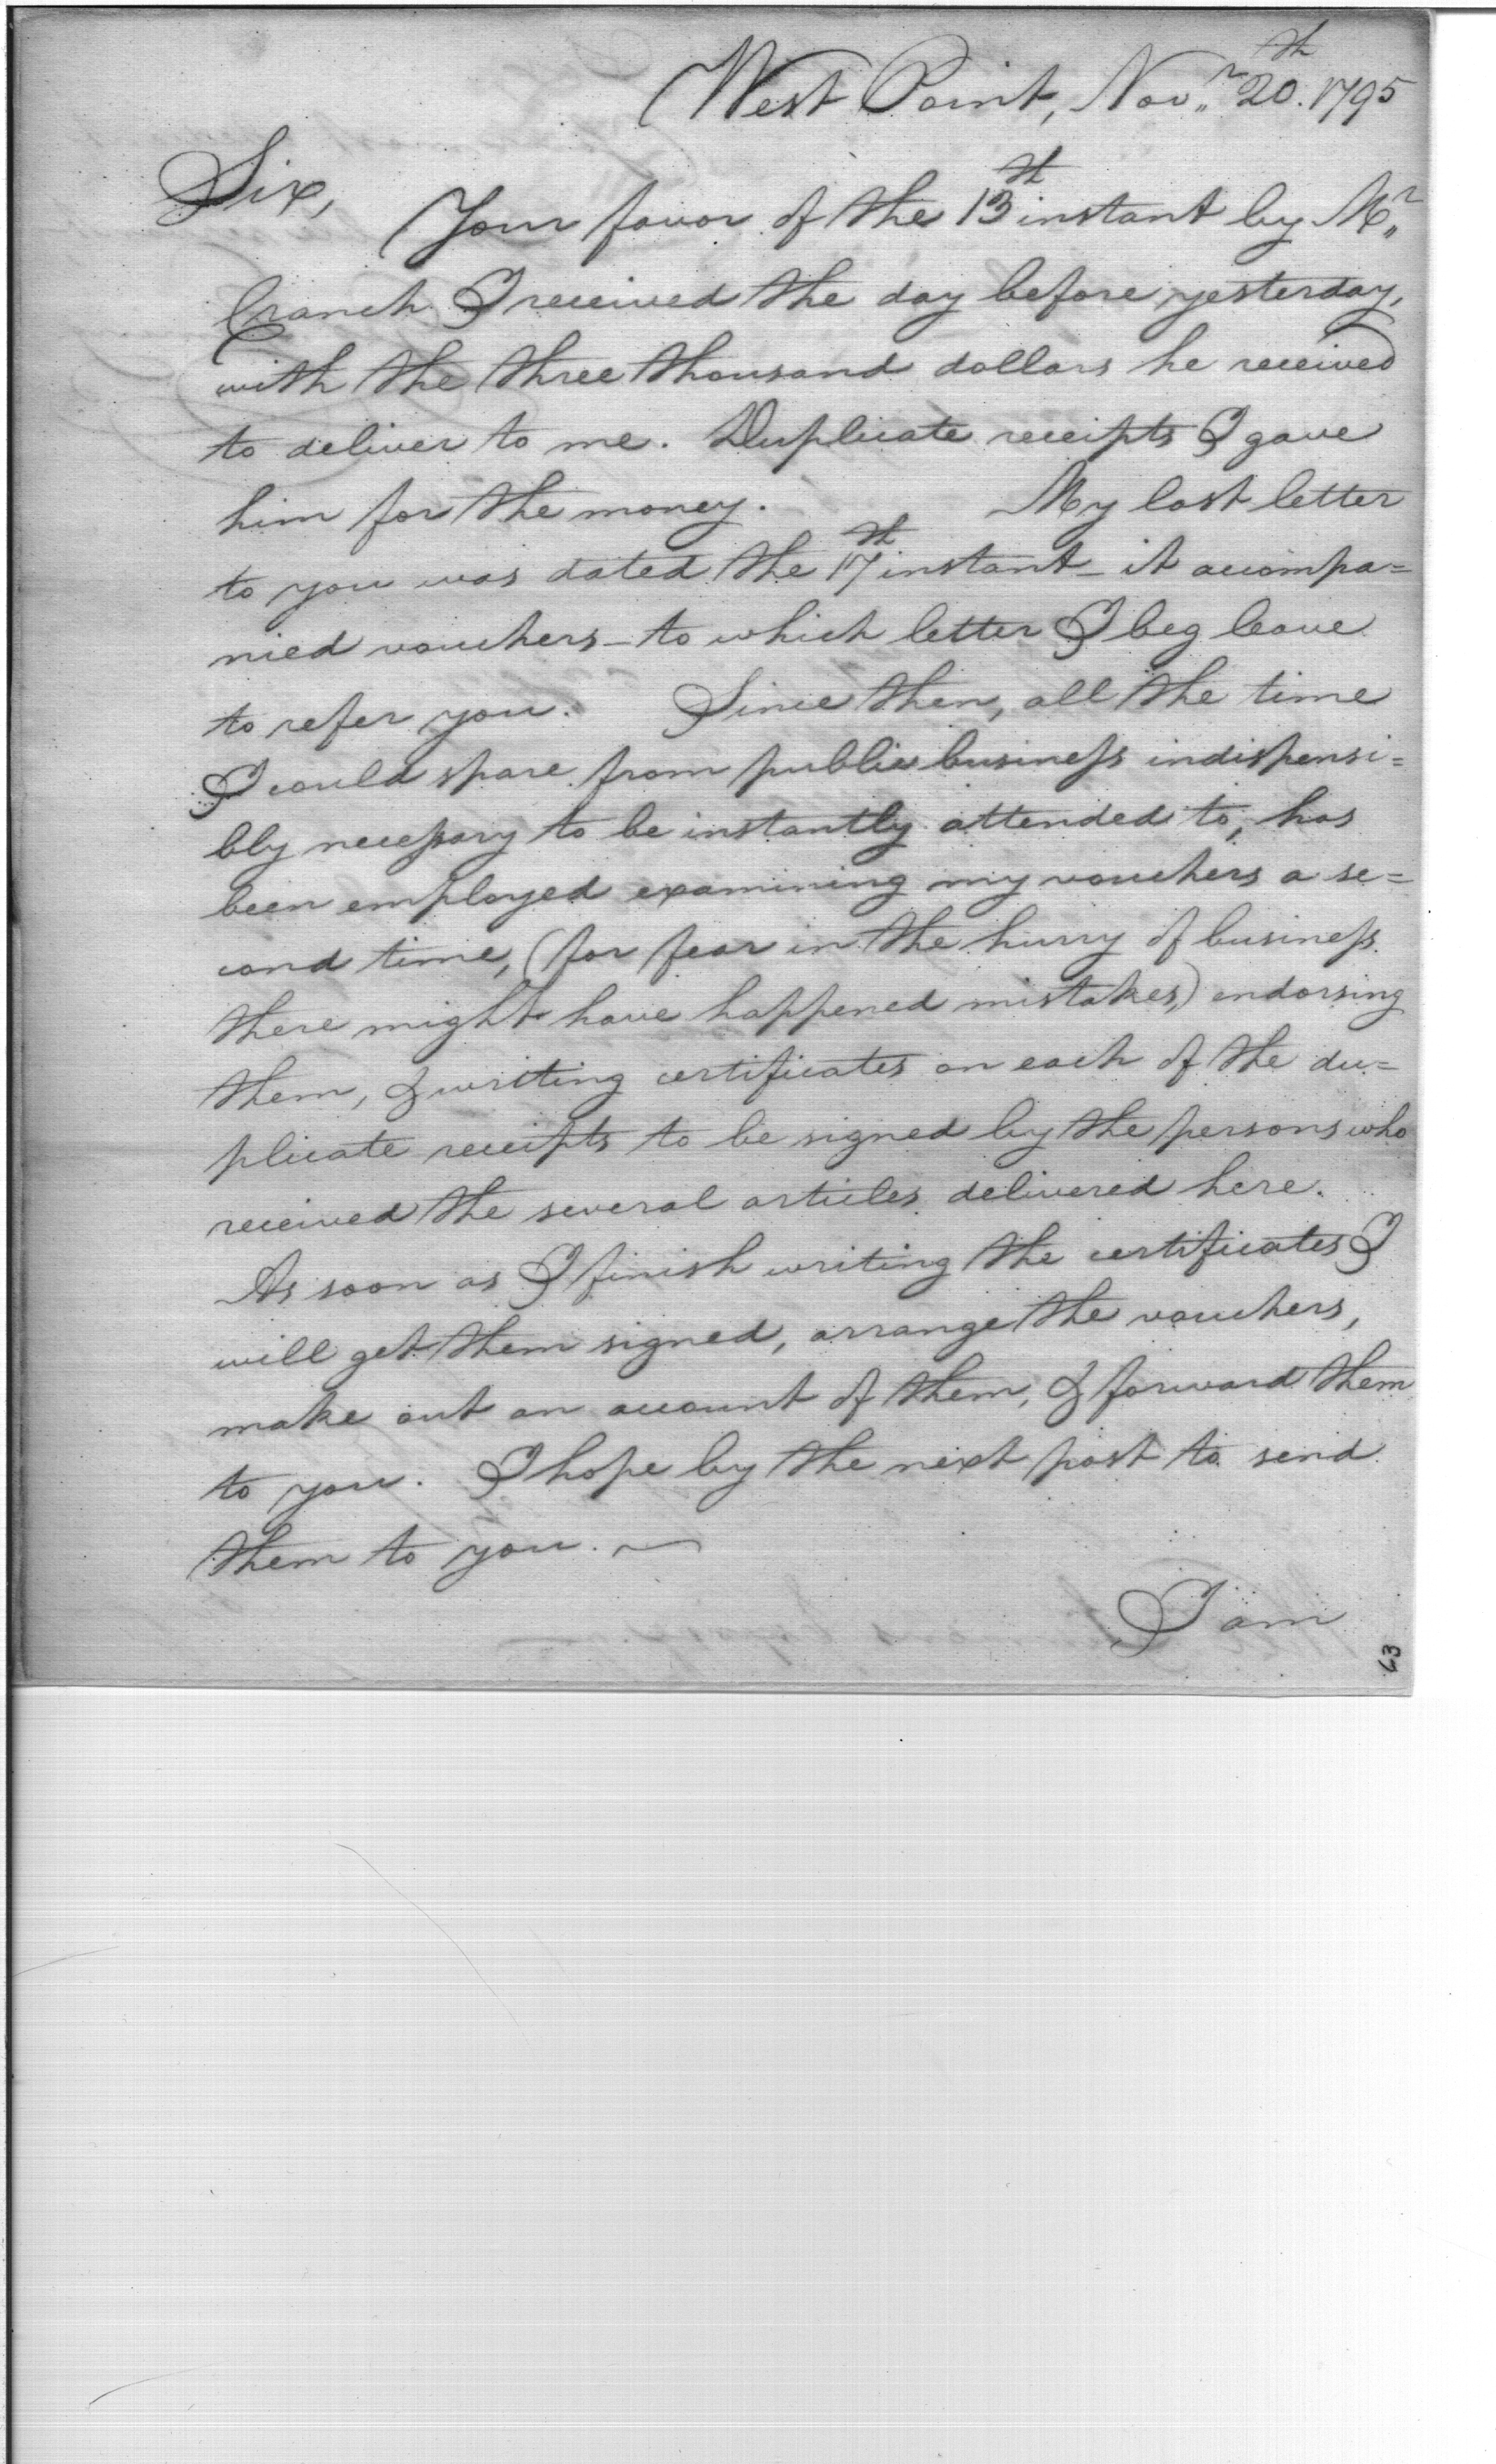 West Point, Nov.r 20.th 1795
Sir, Your favor of the 13th instant by Mr.
Cranch I received the day before yesterday,
with the three thousand dollars he received
to deliver to me. Duplicate receipts I gave
him for the money. My last letter
to you was dated the 17th instant - it accompa=
nied vouchers - to which letter I beg leave
to refer you. Since then, all the time
I could spare from public business indispensi=
bly necessary to be instantly attended to, has
been employed examining my vouchers a se=
cond time, (for fear in the hurry of business
there might have happened mistakes,) endorsing
them, & writing certificates on each of the du=
plicate receipts to be signed by the persons who
received the several articles delivered here.
As soon as I finish writing the certificates I
will get them signed, arrange the vouchers,
make out an account of them, & forward them
to you. I hope by the next post to send
them to you. ~
I am
63